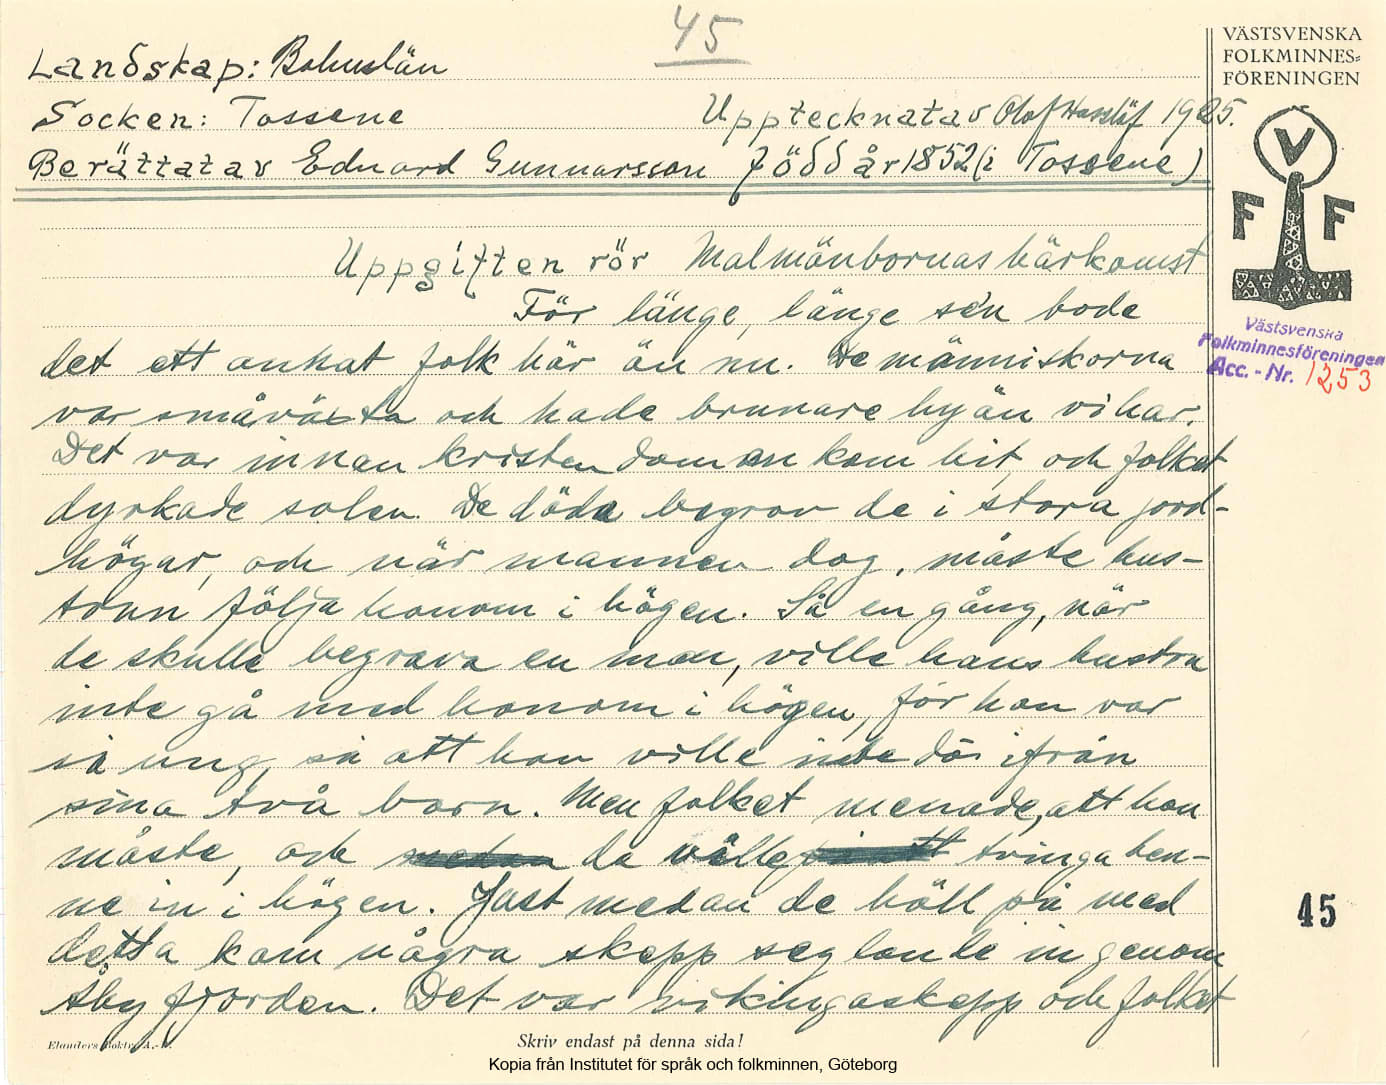 45
VÄSTSVENSKA
FOLKMINNES=
FÖRENINGEN
Landskap: Bohuslän
Socken: Tossene Upptecknat av Olof Hasslöf 1925.
Berättat av Edvard Gunnarsson född år 1852 (i Tossene)
V
F F
Uppgiften rör Malmönbornas härkomst
Västsvenska
Folkminnesföreningen
Acc. - Nr. 1253
För länge, länge se'n bode
det ett annat folk här än nu. De människorna
var småväxta och hade brunare hy än vi har.
Det var innan kristendomen kom hit, och folket
dyrkade solen. De döda begrov de i stora jord-
högar, och när mannen dog, måste hus-
trun följa honom i högen. Så en gång, när
de skulle begrava en man, ville hans hustru
inte gå med honom i högen, för hon var
så ung, så att hon ville inte dö ifrån
sina två barn. Men folket menade, att hon
måste, och de ville tvinga hen-
ne in i högen. Just medan de höll på med
detta kom några skepp seglande in genom
Åbyfjorden. Det var vikingaskepp och folket
45
Elanders Boktr. A.-B.
Skriv endast på denna sida!
Kopia från Institutet för språk och folkminnen, Göteborg